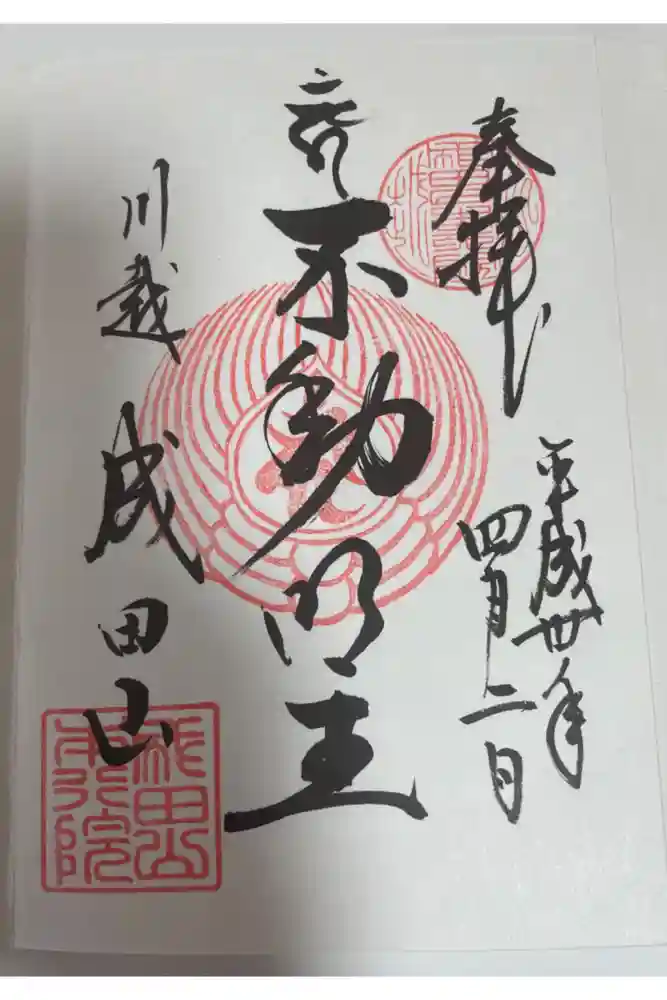 奉拝
平成卅年
四月二日
不動明王
川越 成田山
成田山